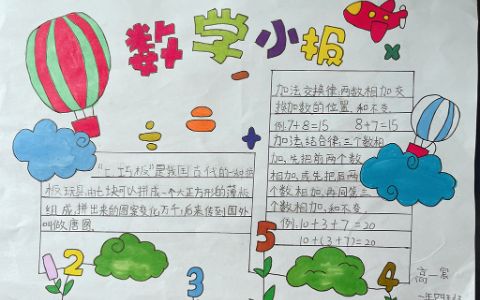 数学小报
÷
=
+
-
×
"七巧板"是我国古代的一种拼
板玩具,由七块可以拼成一个大正方形的薄板
组成,拼出来的图案变化万千,后来传到国外
叫做唐图。
加法交换律:两数相加交
换加数的位置,和不变。
例.7+8=15 8+7=15
加法结合律:三个数相
加,先把前两个数
相加,或先把后两
个数相加,再同第三
个数相加,和不变。
例.10+3+7=20
10+(3+7)=20
1
2
3
5
4
高一